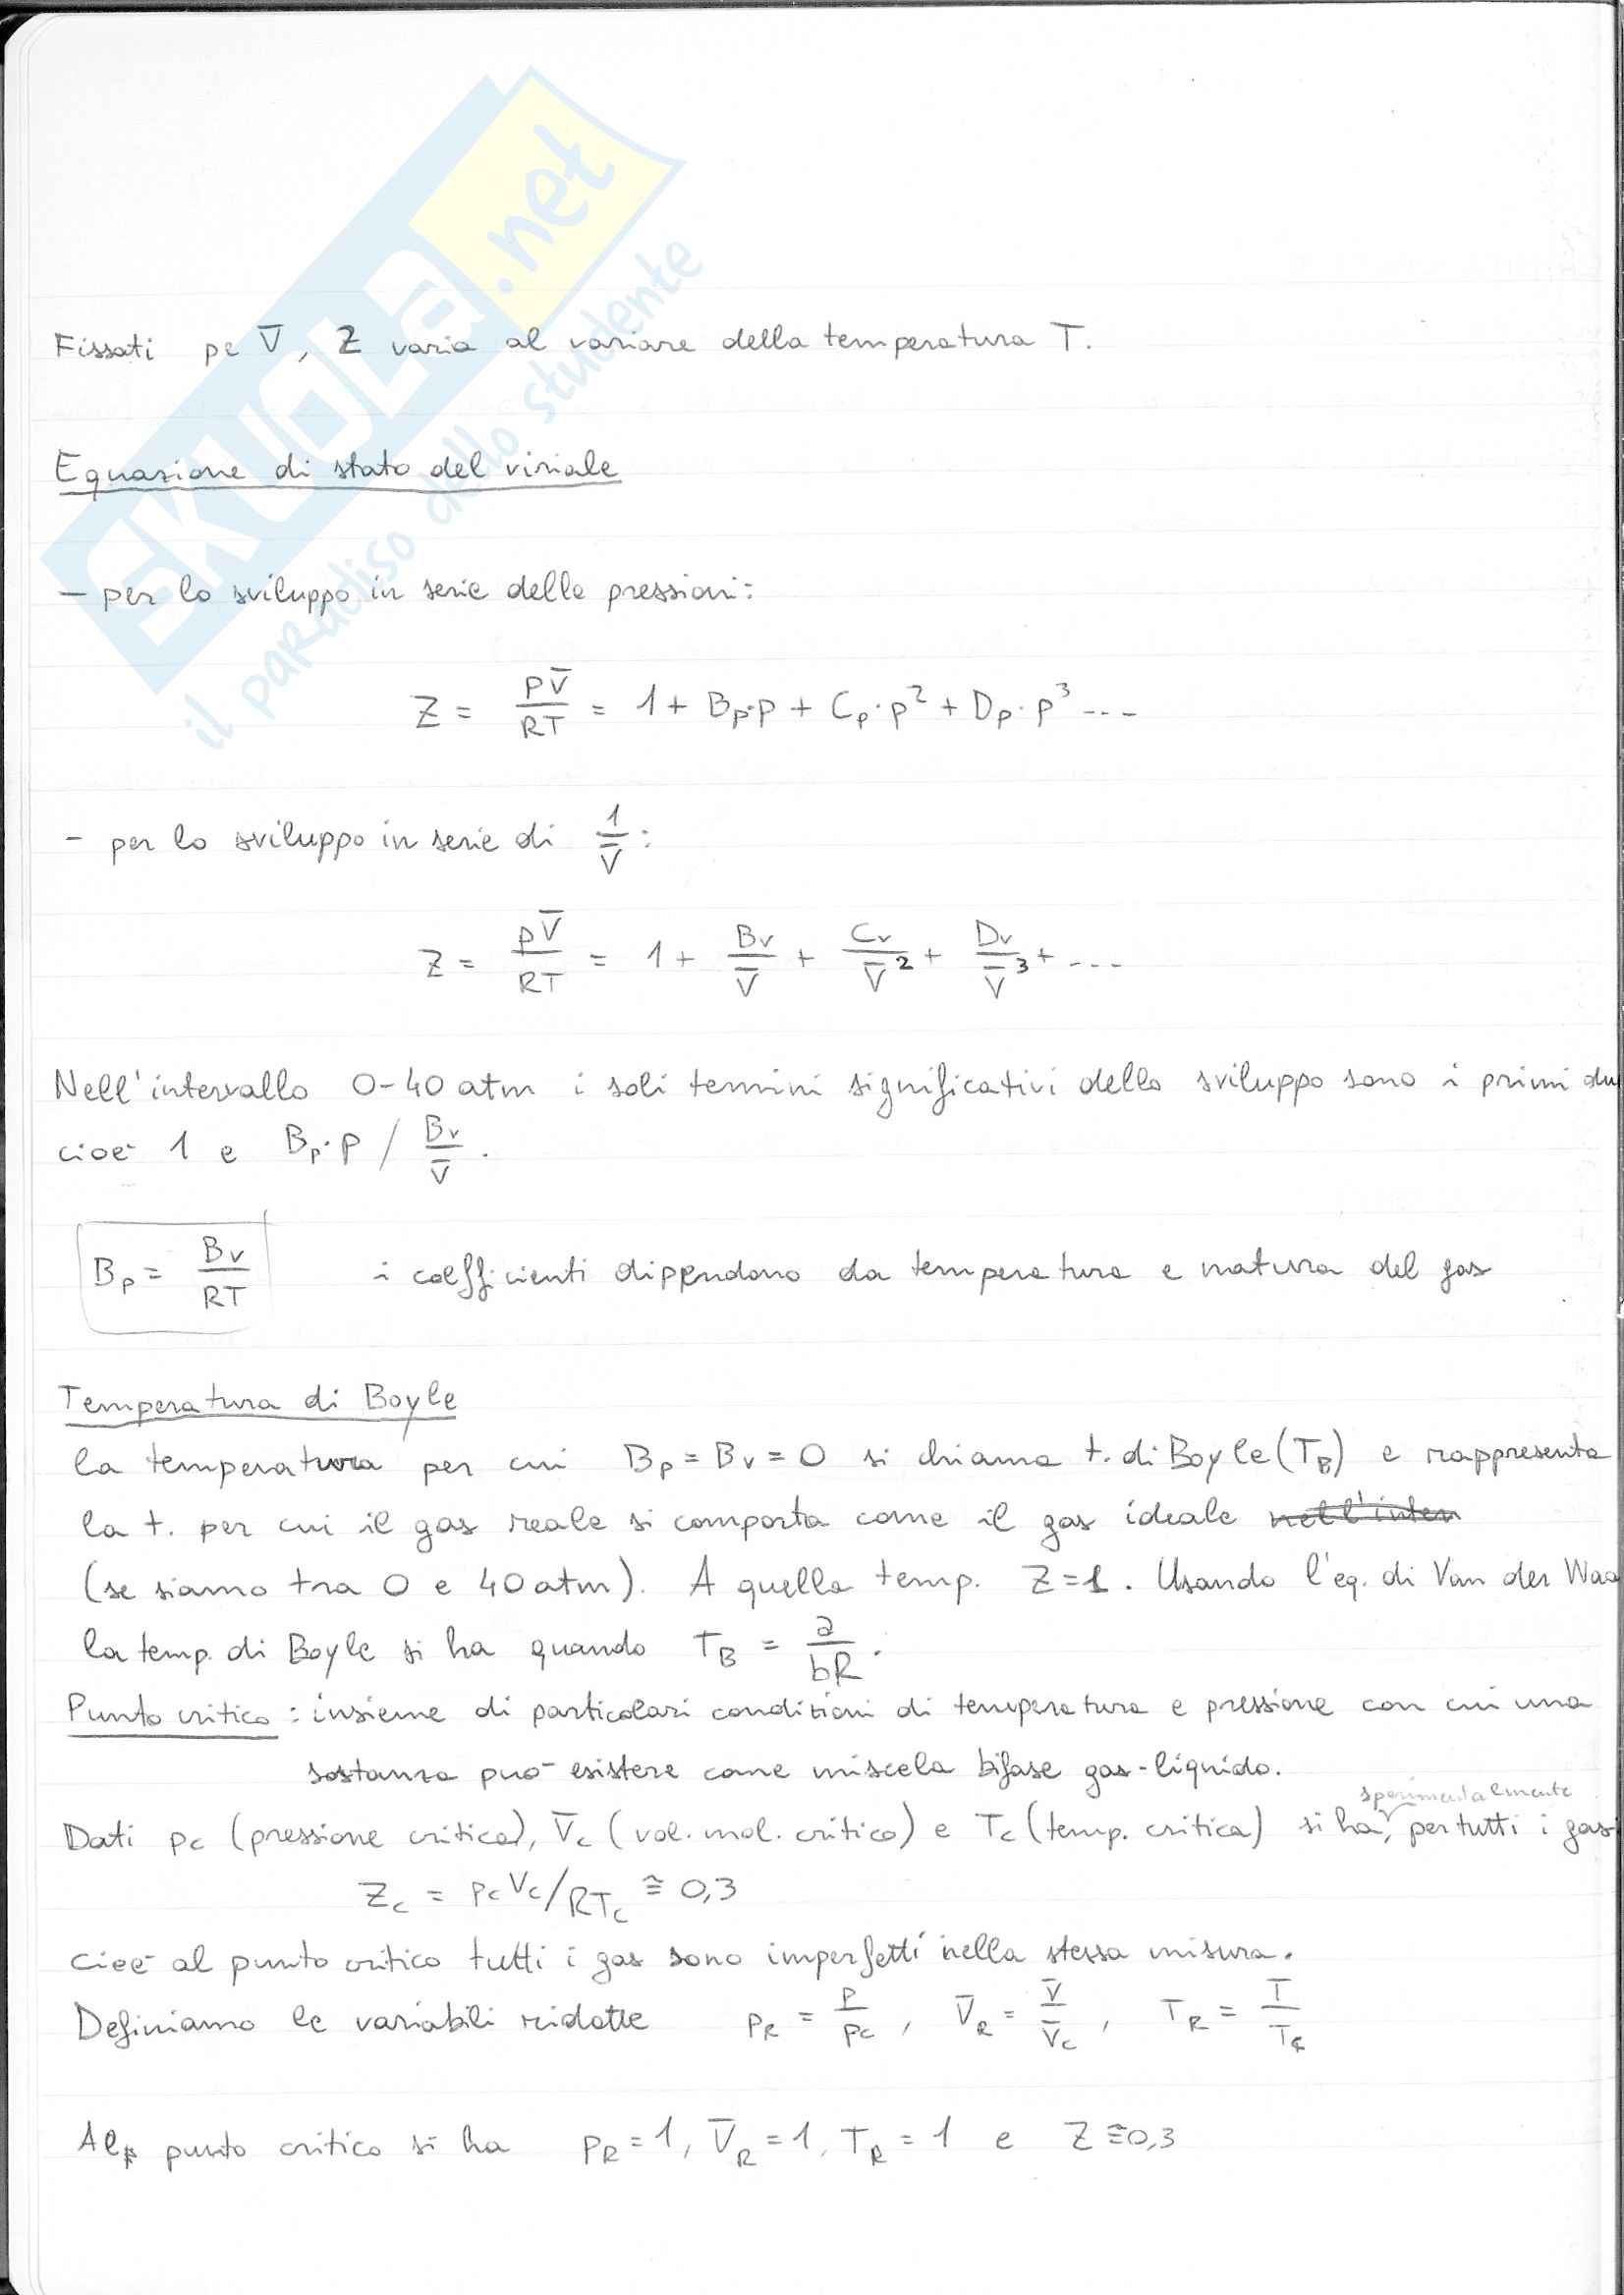 SKUOLA.net
il paradiso dello studente
Fissati p e V̅, Z varia al variare della temperatura T.
Equazione di stato del viriale
- per lo sviluppo in serie delle pressioni:
Z = pV̅/RT = 1 + Bp·p + Cp·p² + Dp·p³ ...
- per lo sviluppo in serie di 1/V̅:
Z = pV̅/RT = 1 + Bv/V̅ + Cv/V̅² + Dv/V̅³ + ...
Nell'intervallo 0-40 atm i soli termini significativi dello sviluppo sono i primi du
cioè 1 e Bp·p / Bv/V̅.
Bp = Bv/RT i coefficienti dipendono da temperatura e natura del gas
Temperatura di Boyle
la temperatura per cui Bp = Bv = 0 si chiama t. di Boyle (TB) e rappresenta
la t. per cui il gas reale si comporta come il gas ideale nell'inter
(se siamo tra 0 e 40 atm). A quella temp. Z=1. Usando l'eq. di Van der Waa
la temp. di Boyle si ha quando TB = a/bR.
Punto critico: insieme di particolari condizioni di temperatura e pressione con cui una
sostanza può esistere come miscela bifase gas-liquido.
Dati pc (pressione critica), V̅c (vol. mol. critico) e Tc (temp. critica) si ha, sperimentalmente per tutti i gas
Zc = pcVc/RTc ≅ 0,3
cioè al punto critico tutti i gas sono imperfetti nella stessa misura.
Definiamo le variabili ridotte pR = p/pc, V̅R = V̅/V̅c, TR = T/Tc
Al punto critico si ha pR = 1, V̅R = 1, TR = 1 e Z ≅ 0,3